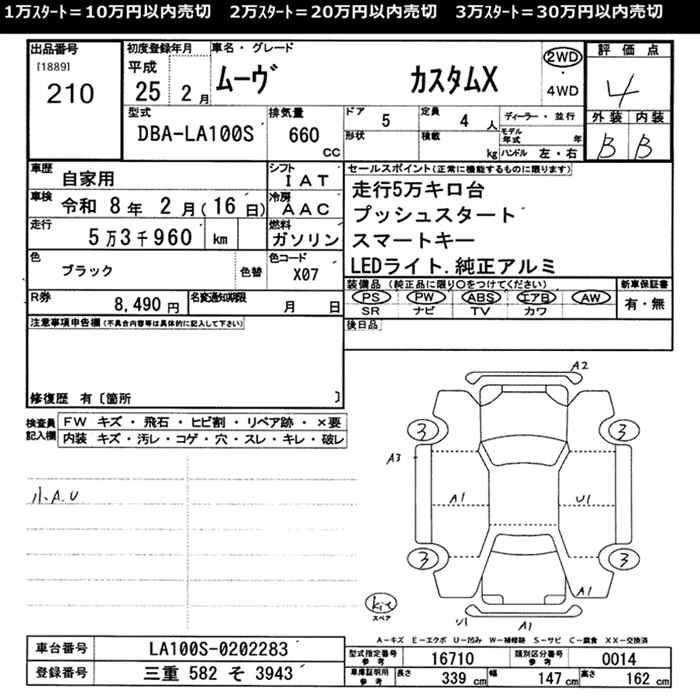 1万ｽﾀｰﾄ＝10万円以内売切　2万ｽﾀｰﾄ＝20万円以内売切　3万ｽﾀｰﾄ＝30万円以内売切
出品番号
[1889]
210
初度登録年月
平成
25 2 月
車名・グレード
ムーヴ カスタムX
2WD
・
4WD
評価点
4
外装 内装
B B
型式
DBA-LA100S
排気量
660
CC
ドア 5
定員 4 人
形状
積載 kg
ディーラー・並行
モデル年式 年
ハンドル 左・右
車歴 自家用
シフト IAT
車検 令和 8 年 2 月(16 日)
冷房 AAC
走行 5万3千960 km
燃料 ガソリン
色 ブラック
色替
色コード X07
R券 8,490 円
名変通知期限 月 日
セールスポイント(正常に機能するものに限ります)
走行5万キロ台
プッシュスタート
スマートキー
LEDライト.純正アルミ
装備品 (純正品に限り○をつけてください)
PS PW ABS エアB AW
SR ナビ TV カワ
新車保証書
有・無
後日品
注意事項申告欄(不具合内容等は具体的に記入して下さい)
修復歴 有〔箇所 〕
検査員記入欄
FW キズ・飛石・ヒビ割・リペア跡・×要
内装 キズ・汚レ・コゲ・穴・スレ・キレ・破レ
小A.U
A2
3 3
A3
A1 U1
3 3
A1
kit
スペア
U1 A1
A-キズ E-エクボ U-凹み W-補修跡 S-サビ C-腐食 XX-交換済
車台番号 LA100S-0202283
登録番号 三重 582 そ 3943
型式指定番号 参考 16710
類別区分番号 参考 0014
車庫証明用 参考
長さ 339 cm
幅 147 cm
高さ 162 cm